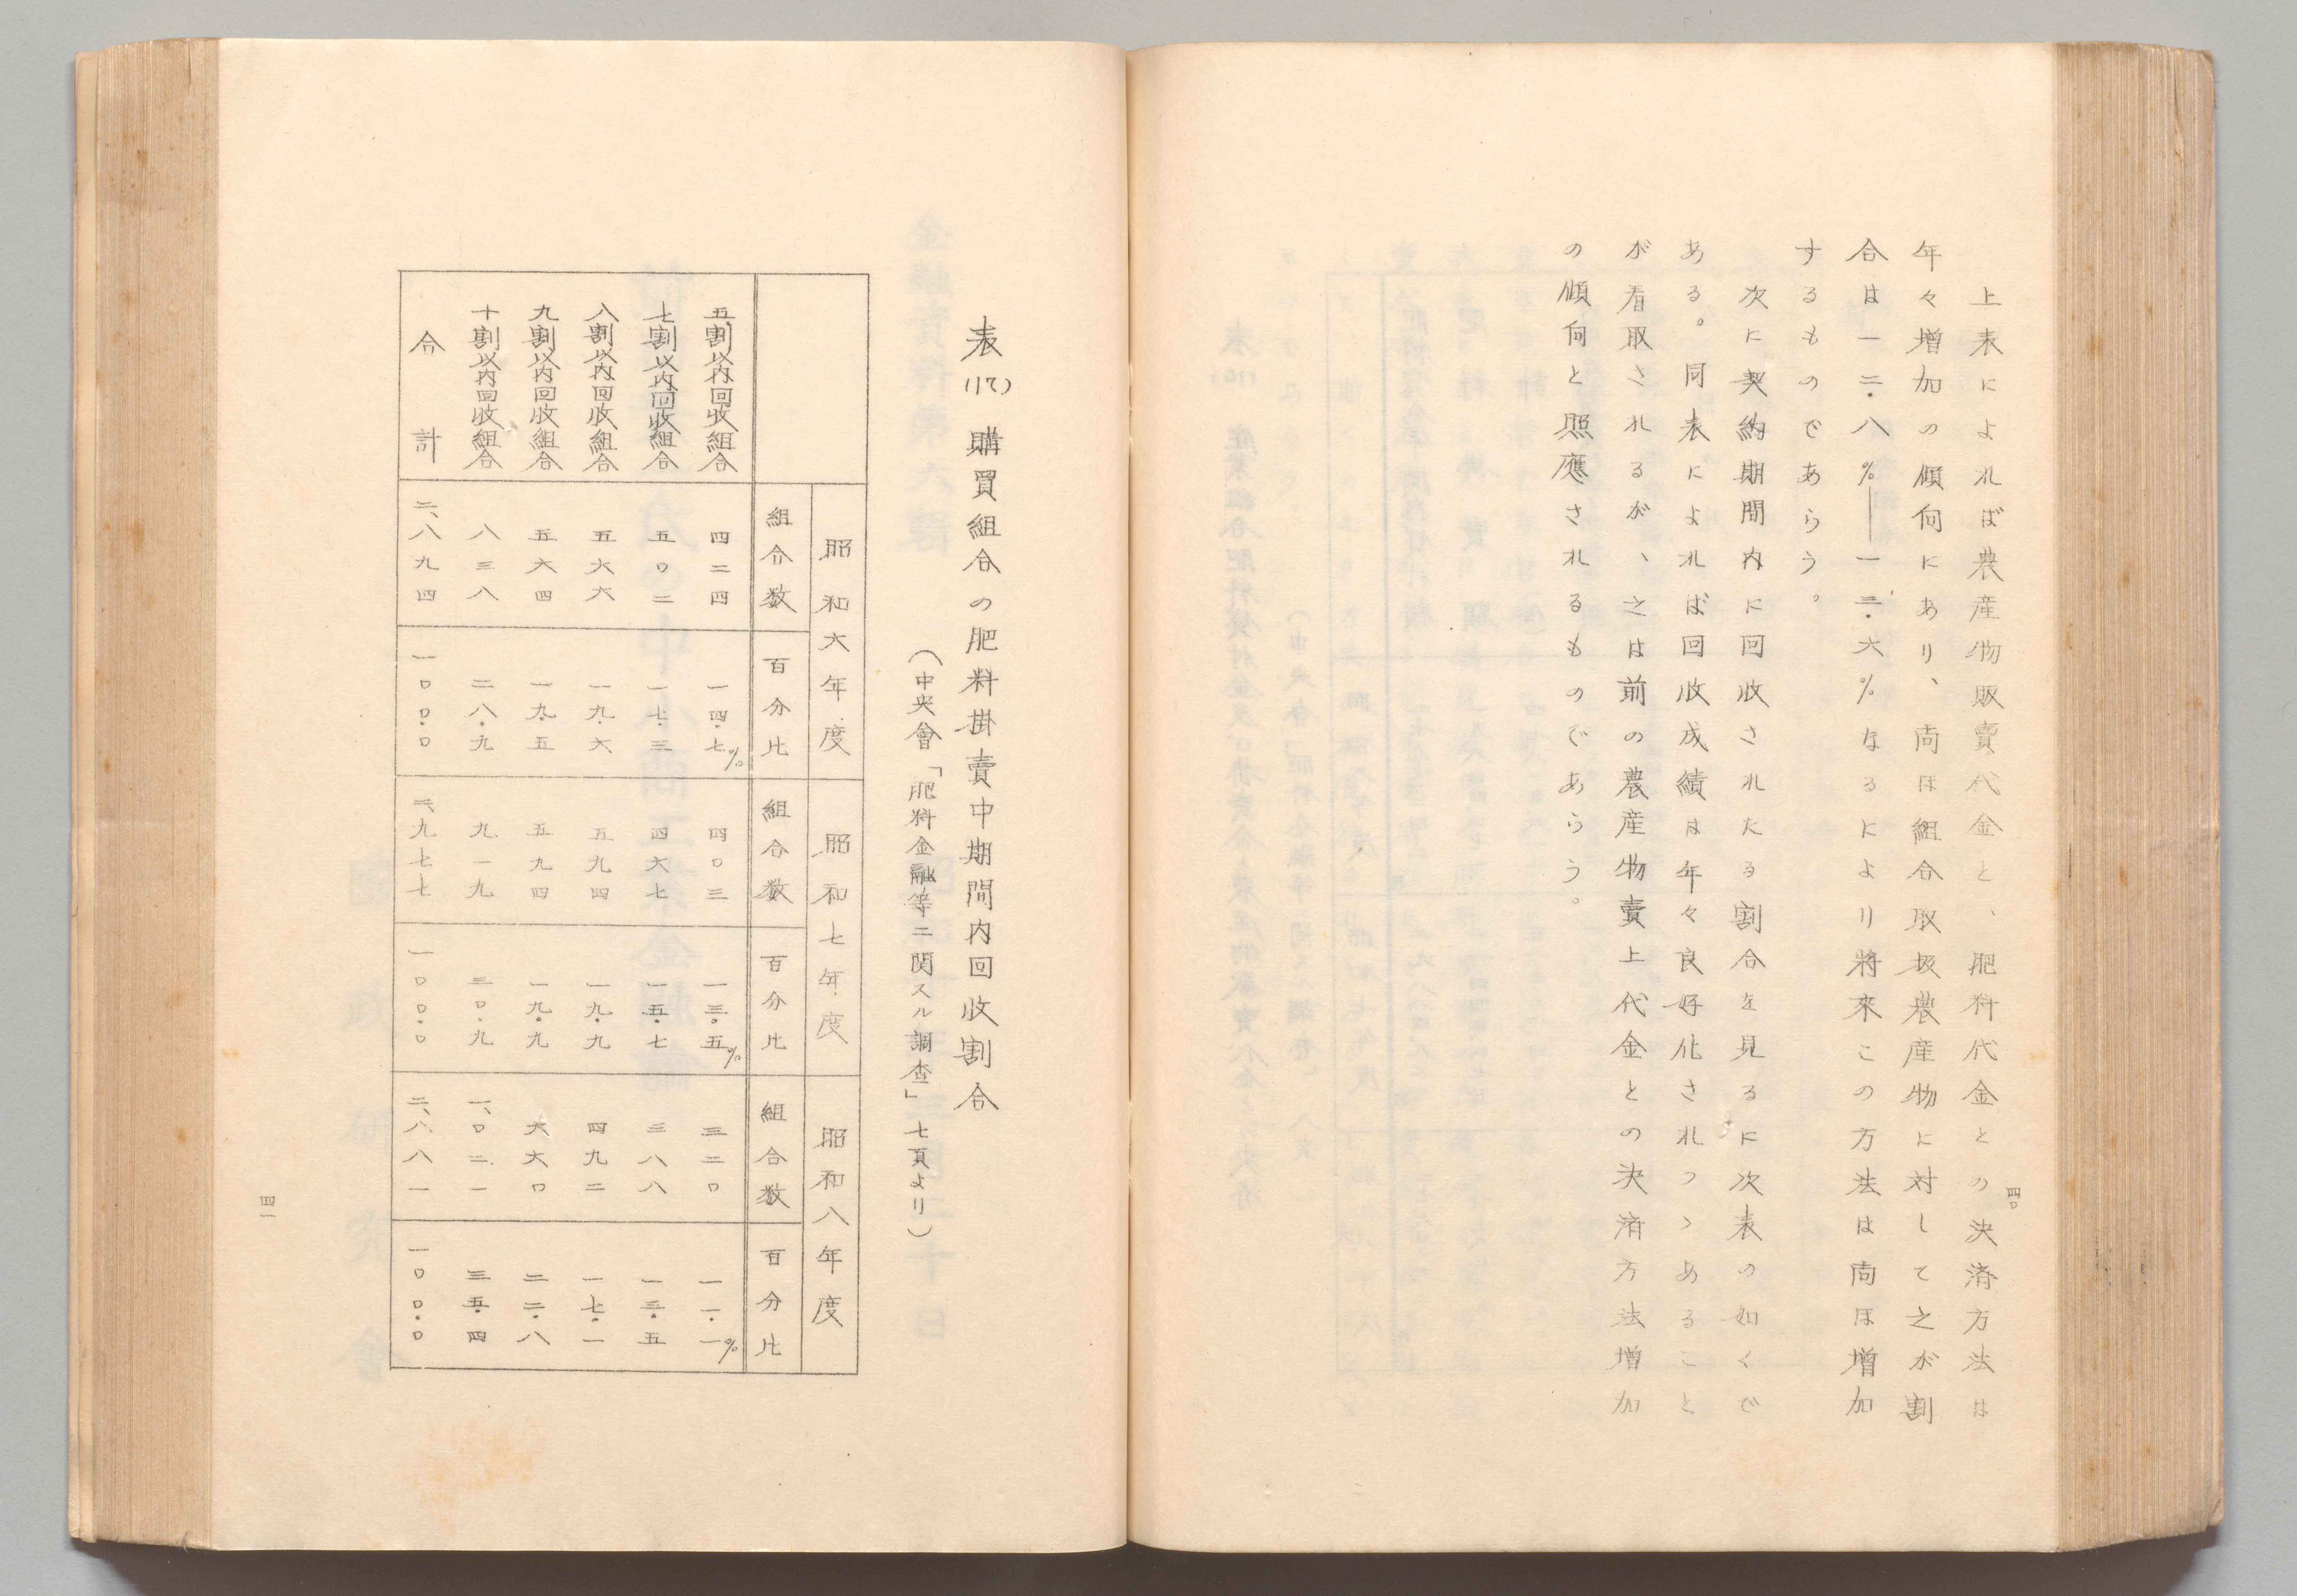 四〇
上表によれば農産物販賣代金と、肥料代金との決済方法は
年々増加の傾向にあり、尚ほ組合取扱農産物に対して之が割
合は一二・八%――一三・六%なるにより將來この方法は尚ほ増加
するものであらう。
次に契約期間内に回收されたる割合を見るに次表の如くで
ある。同表によれば回收成績は年々良好化されつゝあること
が看取されるが、之は前の農産物賣上代金との決済方法増加
の傾向と照應されるものであらう。
表(17) 購買組合の肥料掛賣中期間内回收割合
（中央會「肥料金融等ニ関スル調査」七頁より）
昭和六年度 昭和七年度 昭和八年度
組合数 百分比 組合数 百分比 組合数 百分比
五割以内回收組合 四二四 一四・七% 四〇三 一三・五% 三二〇 一一・一%
七割以内回收組合 五〇二 一七・三 四六七 一五・七 三八八 一三・五
八割以内回收組合 五六六 一九・六 五九四 一九・九 四九二 一七・一
九割以内回收組合 五六四 一九・五 五九四 一九・九 六六〇 二二・八
十割以内回收組合 八三八 二八・九 九一九 三〇・九 一、〇二一 三五・四
合計 二、八九四 一〇〇・〇 二、九七七 一〇〇・〇 二、八八一 一〇〇・〇
四一